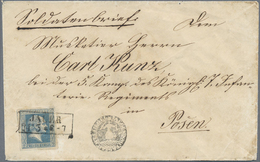 Soldatenbrief
Dem
Musketier Herrn
Carl Kunz
bei der 3. Komp. des Königl. 7. Infan-
terie-Regiments
in
Posen